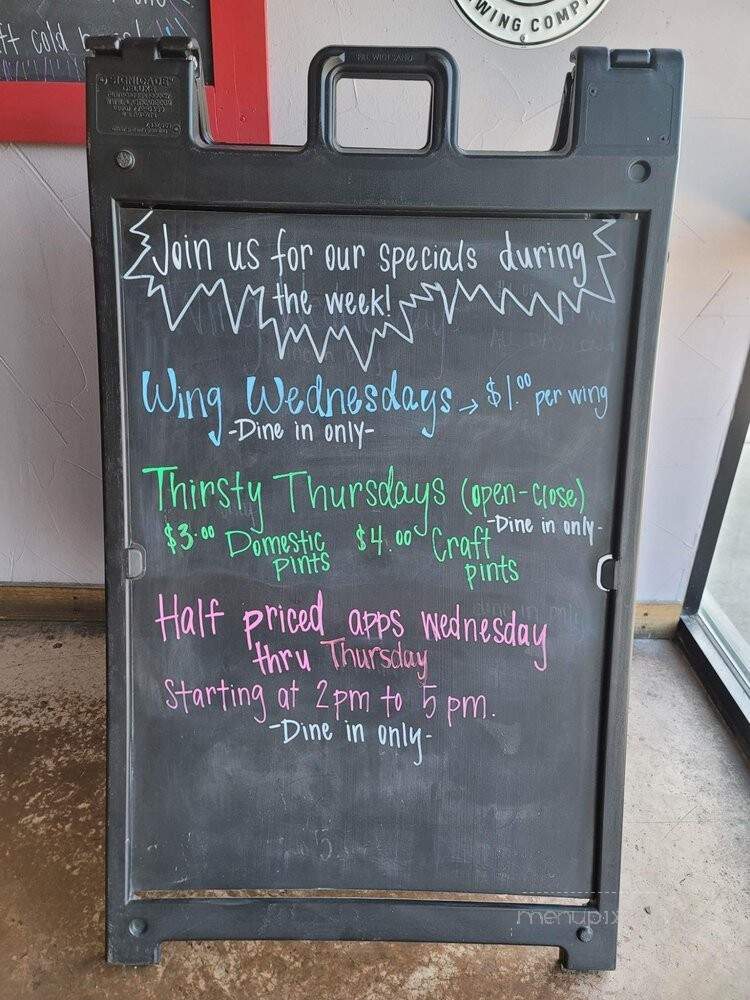 ft cold
WING COMP
SIGNICADE
DELUXE
Join us for our specials during
the week!
Wing Wednesdays → $1.00 per wing
-Dine in only-
Thirsty Thursdays (open-close)
-Dine in only-
$3.00 Domestic pints $4.00 Craft pints
Half priced apps wednesday
thru Thursday
Starting at 2pm to 5 pm.
-Dine in only-
menupix